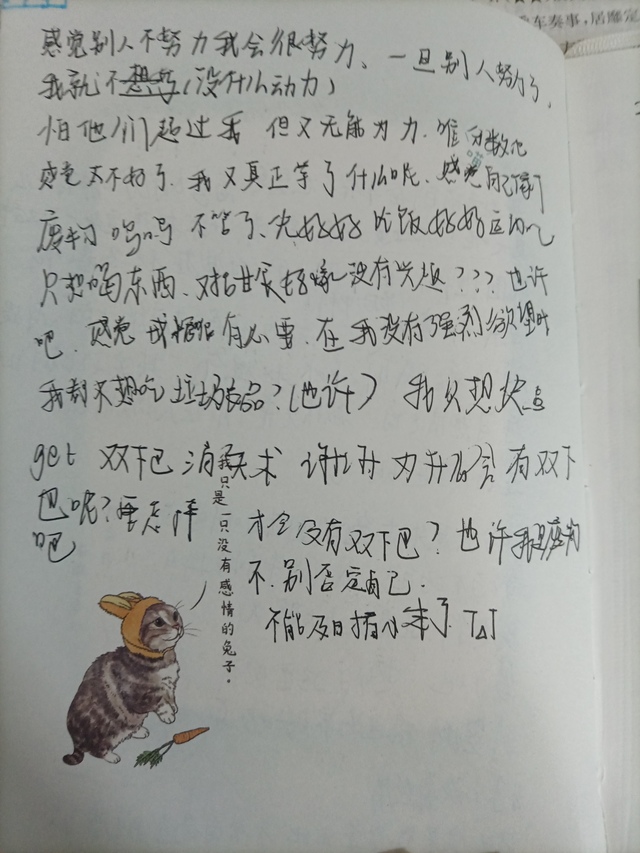 车奏事，居廱定
感觉别人不努力我会很努力、一旦别人努力了，
我就不想学（没什么动力）
怕他们超过我 但又无能为力. 唯分数论
感觉太不好了. 我又真正学了什么呢、感觉自己像个
废物 呜呜 不管了、先好好吃饭好好运动吧
只想喝东西、对 没有兴趣？？？也许
吧. 感觉戒糖 有必要. 在我没有强烈欲望时
我都不想吃垃圾食品？（也许） 我只想快点
get 双下巴消失术 为什么会有双下
巴呢？要怎样才会没有双下巴？也许我是废物
吧 不. 别否定自己.
不能及日 本了. T△T
我只是一只没有感情的兔子。